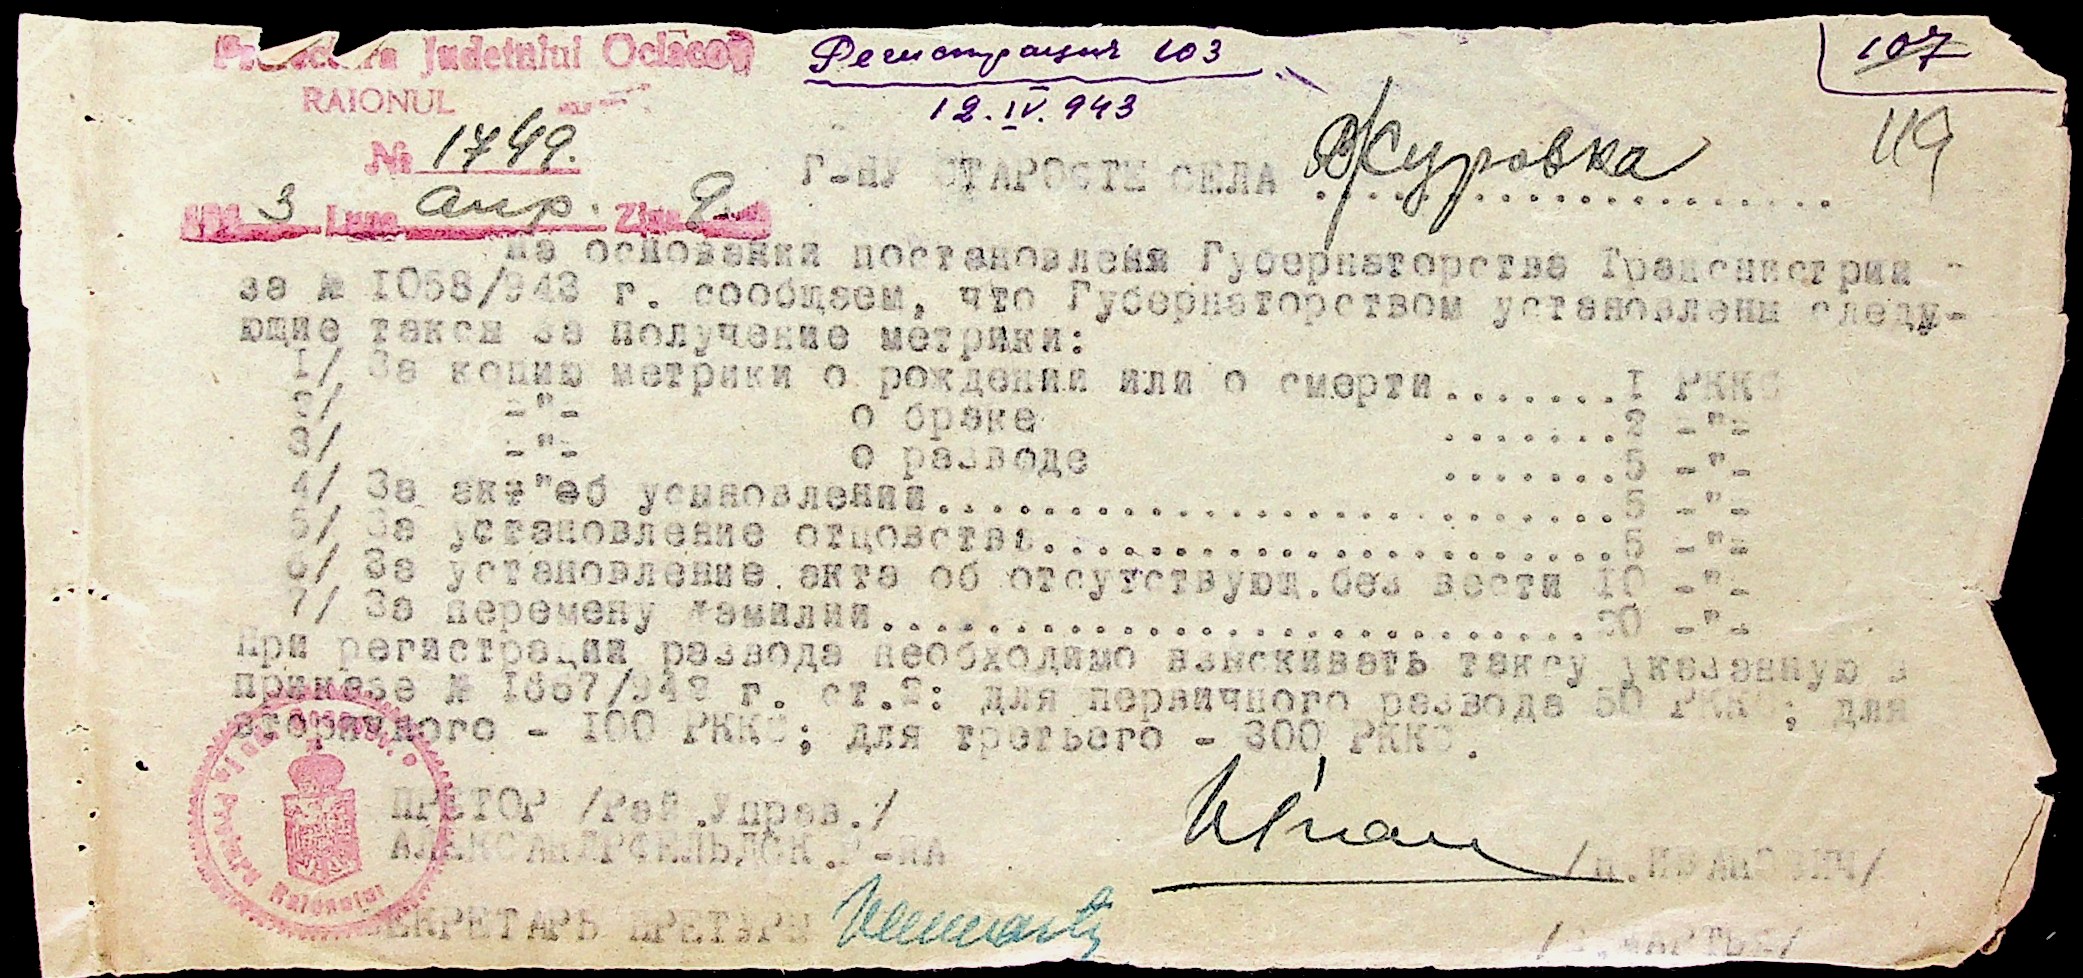 Prefectura Judetului Oceacov
RAIONUL
Регистрация 103
12.IV.943
107
119
№ 1749.
Г-НУ СТАРОСТЕ СЕЛА Журовка
3 Luna апр. Ziua 9
На основании постановленя Губернаторства Транснистрии -
за № 1058/943 г. сообщаем, что Губернаторством установлены следу-
ющие таксы за получение метрики:
1/ За копию метрики о рождении или о смерти.......1 РККС
2/ -"- о браке .......2 -"-
3/ -"- о разводе .......5 -"-
4/ За акт об усыновлении..........................5 -"-
5/ За установление отцовства......................5 -"-
6/ За установление акта об отсутствующ.без вести 10 -"-
7/ За перемену фамилии...........................20 -"-
При регистрации развода необходимо взыскивать таксу указанную в
приказе № 1667/942 г. ст.2: для первичного развода 50 РККС; для
вторичного - 100 РККС; для третьего - 300 РККС.
ПРЕТОР /Рай.Управ./
АЛЕКСАНДРФЕЛЬДСК.Р-НА
/И.ИВАНОВИЧ/
Raionului
СЕКРЕТАРЬ ПРЕТУРЫ